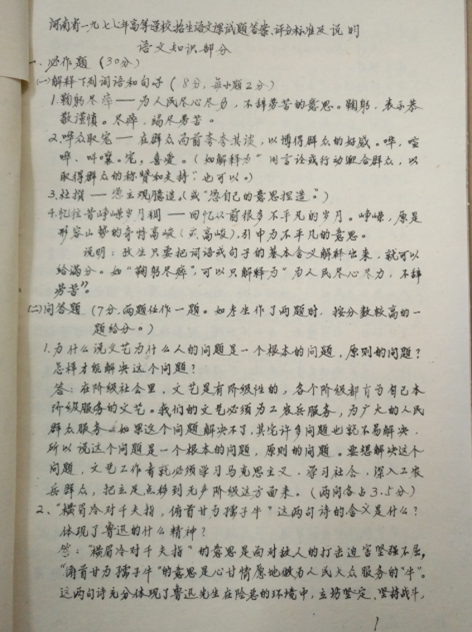 河南省一九七七年高等学校招生语文试题答案、评分标准及说明
语文知识部分
一、必作题（30分）
(一)解释下列词语和句子（8分，每小题2分）
1.鞠躬尽瘁——为人民尽心尽力，不辞劳苦的意思。鞠躬，表示恭
敬谨慎。尽瘁，竭尽劳苦。
2.哗众取宠——在群众面前夸夸其谈，以博得群众的好感。哗，喧
哗、叫嚷。宠，喜爱。（如解释为"用言论或行动迎合群众，以
取得群众的称赞和支持"也可以。）
3.杜撰——凭主观臆造。（或"凭自己的意思捏造"。）
4.忆往昔峥嵘岁月稠——回忆以前很多不平凡的岁月。峥嵘，原是
形容山势的奇特高峻（或高峻），引申为不平凡的意思。
说明：考生只要把词语或句子的基本含义解释出来，就可以
给满分。如"鞠躬尽瘁"，可以只解释为"为人民尽心尽力，不辞
劳苦"。
(二)问答题（7分，两题任作一题。如考生作了两题时，按分数较高的一
题给分。）
1.为什么说文艺为什么人的问题是一个根本的问题，原则的问题？
怎样才能解决这个问题？
答：在阶级社会里，文艺是有阶级性的，各个阶级都有为自己本
阶级服务的文艺。我们的文艺必须为工农兵服务，为广大的人民
群众服务。如果这个问题解决不了，其它许多问题也就不易解决，
所以说这个问题是一个根本的问题，原则的问题。要想解决这个
问题，文艺工作者就必须学习马克思主义，学习社会，深入工农
兵群众，把立足点移到无产阶级这方面来。（两问各占3.5分）
2、"横眉冷对千夫指，俯首甘为孺子牛"这两句诗的含义是什么？
体现了鲁迅的什么精神？
答："横眉冷对千夫指"的意思是面对敌人的打击迫害坚强不屈，
"俯首甘为孺子牛"的意思是心甘情愿地做为人民大众服务的"牛"。
这两句诗充分体现了鲁迅先生在险恶的环境中，立场坚定、坚持战斗，
1